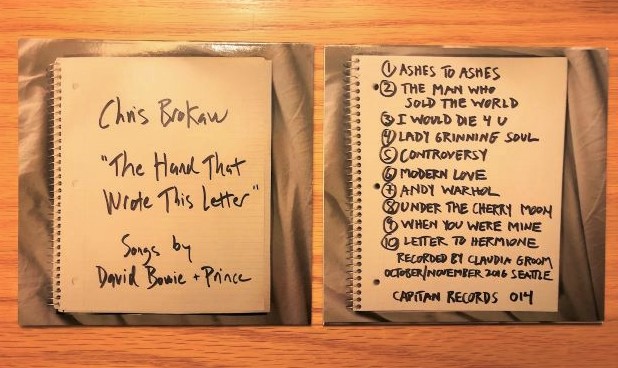 Chris Brokaw
"The Hand That
Wrote This Letter"
Songs by
David Bowie + Prince
1 ASHES TO ASHES
2 THE MAN WHO
SOLD THE WORLD
3 I WOULD DIE 4 U
4 LADY GRINNING SOUL
5 CONTROVERSY
6 MODERN LOVE
7 ANDY WARHOL
8 UNDER THE CHERRY MOON
9 WHEN YOU WERE MINE
10 LETTER TO HERMIONE
RECORDED BY CLAUDIA GROOM
OCTOBER/NOVEMBER 2016 SEATTLE
CAPITAN RECORDS 014